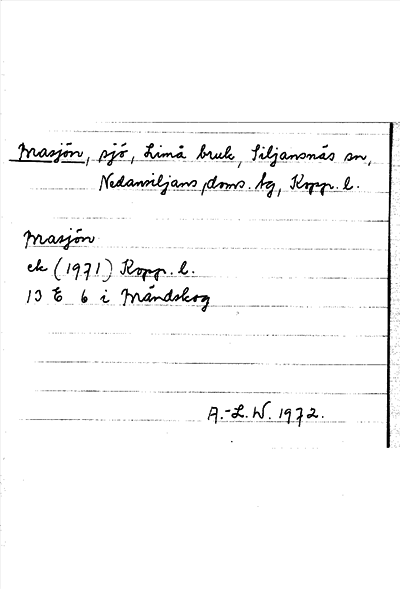 Masjön, sjö, Limå bruk, Siljansnäs sn,
Nedansiljans doms. tg, Kopp. l.
Masjön
ek (1971) Kopp. l.
13 E 6 i Måndskog
A.-L. W. 1972.